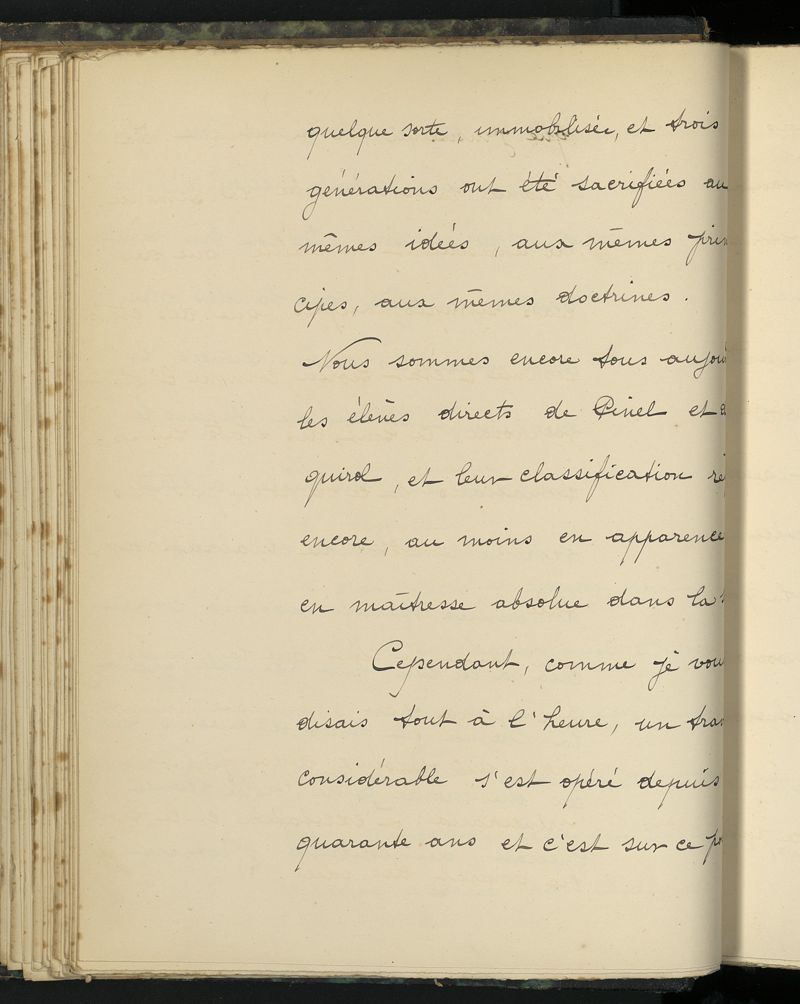 quelque sorte, immobilisée, et trois
générations ont été sacrifiées au
mêmes idées, aux mêmes prin
cipes, aux mêmes doctrines.
Nous sommes encore tous aujou
les élèves directs de Pinel et
quirol, et leur classification
encore, au moins en apparence
en maîtresse absolue dans la
Cependant, comme je vou
disais tout à l'heure, un trav
considérable s'est opéré depuis
quarante ans et c'est sur ce